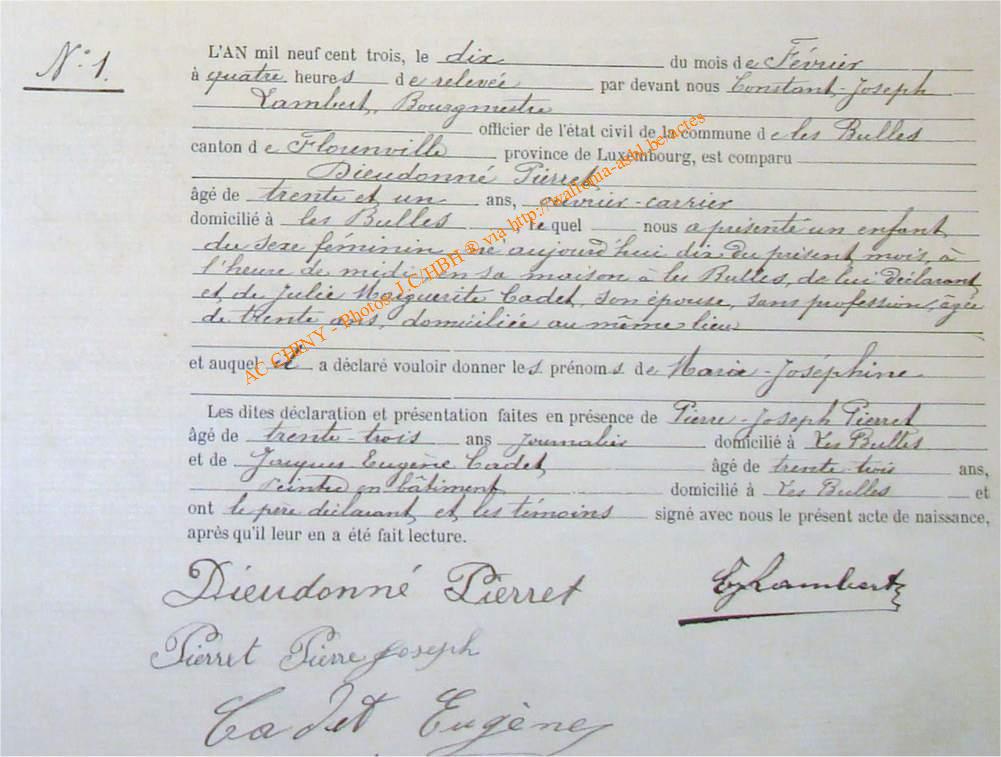 N° 1.
L'AN mil neuf cent trois, le dix du mois de Février
à quatre heures de relevée par devant nous Constant-Joseph
Lambert, Bourgmestre
officier de l'état civil de la commune de les Bulles
canton de Florenville province de Luxembourg, est comparu
Dieudonné Pierret
âgé de trente et un ans, ouvrier-carrier
domicilié à les Bulles lequel nous a présenté un enfant
du sexe féminin né aujourd'hui dix du présent mois, à
l'heure de midi en sa maison à les Bulles, de lui déclarant
et de Julie Marguerite Cadet, son épouse, sans profession, âgée
de trente ans, domiciliée au même lieu
et auquel il a déclaré vouloir donner les prénoms de Marie-Joséphine
Les dites déclaration et présentation faites en présence de Pierre-Joseph Pierret
âgé de trente-trois ans journalier domicilié à Les Bulles
et de Jacques Eugène Cadet, âgé de trente-trois ans,
peintre en bâtiment domicilié à Les Bulles et
ont le père déclarant et les témoins signé avec nous le présent acte de naissance,
après qu'il leur en a été fait lecture.
Dieudonné Pierret
CJLambert
Pierret Pierre joseph
Cadet Eugène
AC CHINY - Photos J.C/HBH ® via http://wallonia-asbl.be/actes